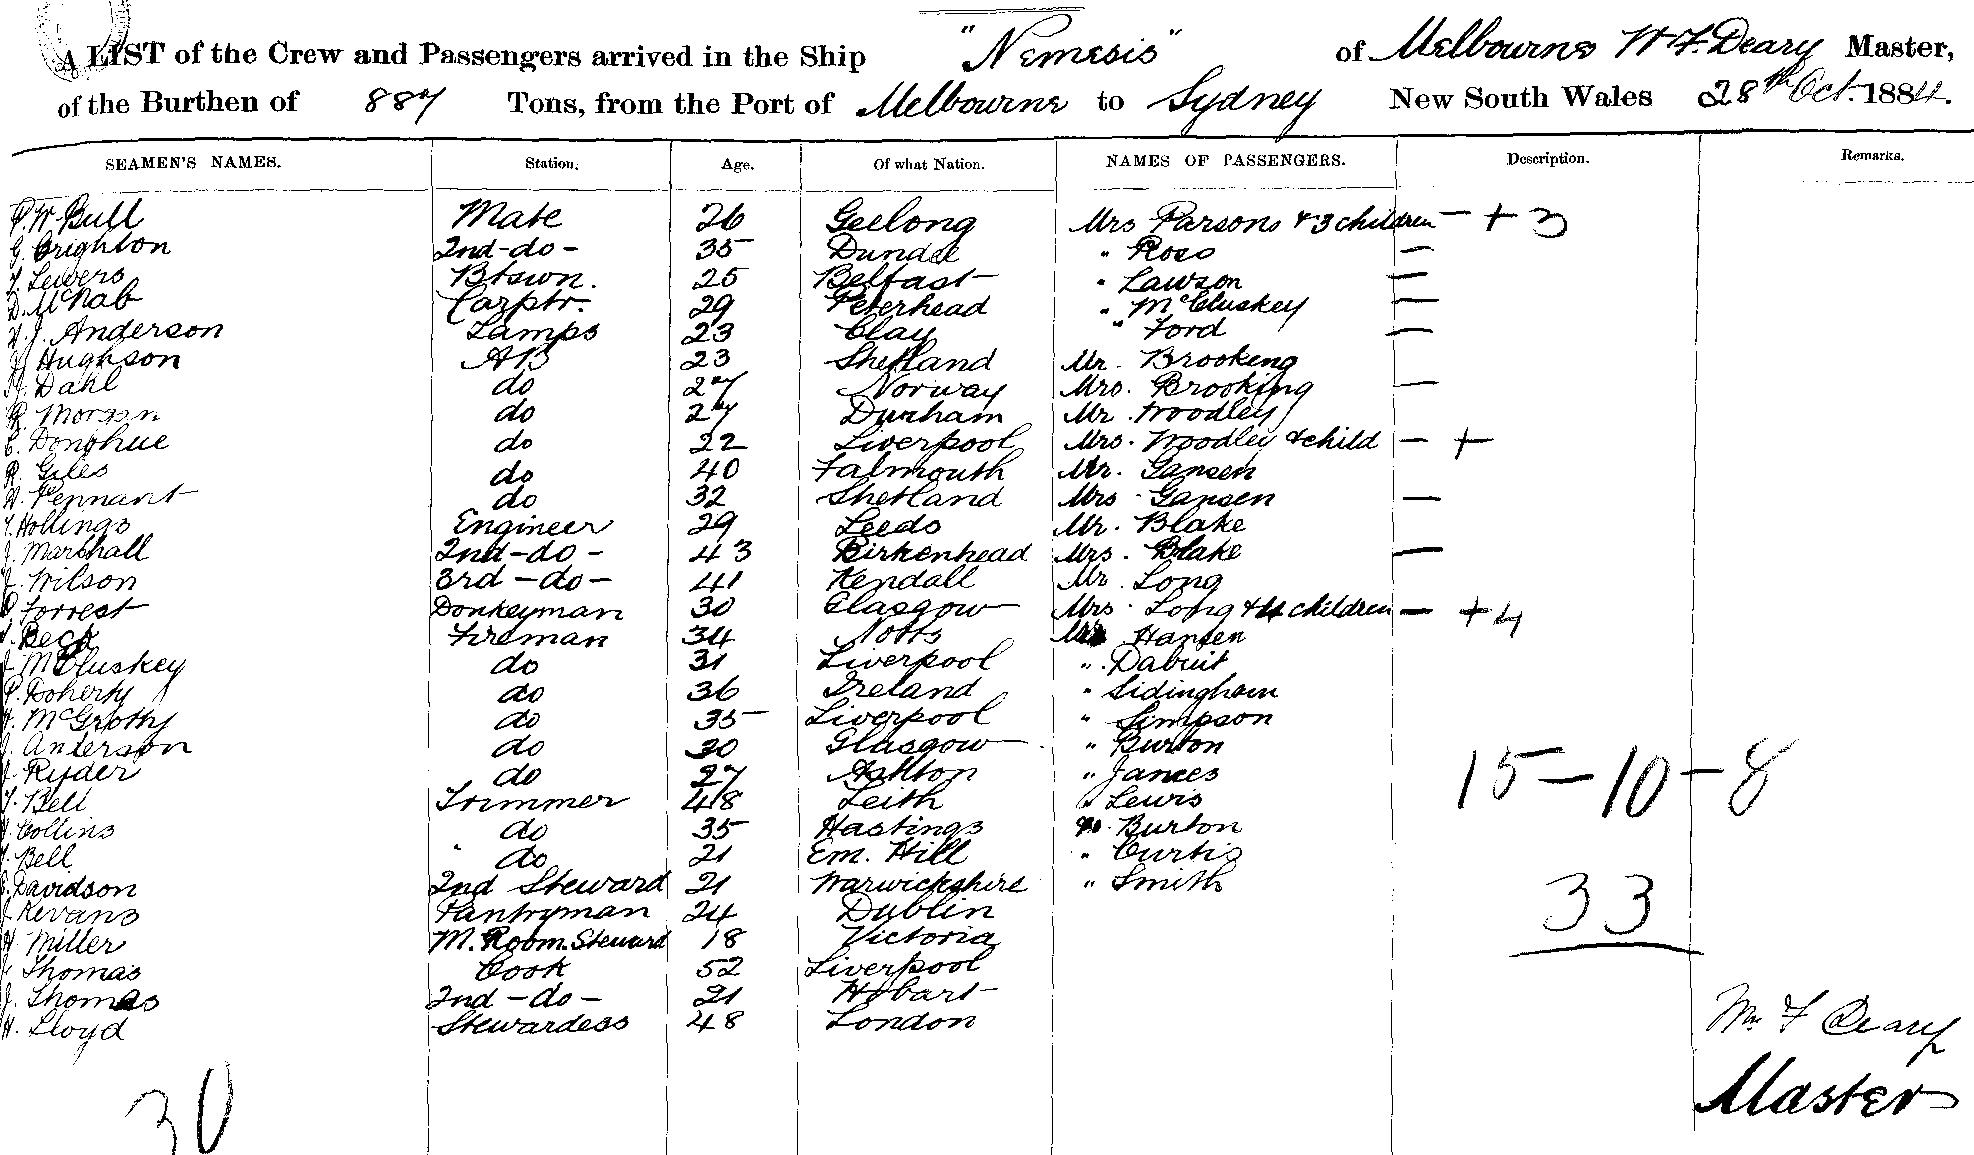 A LIST of the Crew and Passengers arrived in the Ship "Nemesis" of Melbourne W F Deary Master,
of the Burthen of 887 Tons, from the Port of Melbourne to Sydney New South Wales 28th Oct. 1884.
SEAMEN'S NAMES. Station. Age. Of what Nation. NAMES OF PASSENGERS. Description. Remarks.
P. W Bull Mate 26 Geelong Mrs Parsons & 3 children - + 3
G. Crighton 2nd - do - 35 Dundee " Ross -
Lewers Btswn. 25 Belfast " Lawson -
D. McNab Carptr. 29 Peterhead " McCluskey -
J. Anderson Lamps 23 Clay " Ford -
Hughson AB 23 Shetland Mr. Brooking
Dahl do 27 Norway Mrs. Brooking -
Morgan do 27 Durham Mr. Woodley
C. Donghue do 22 Liverpool Mrs. Woodley & child - +
R. Giles do 40 Falmouth Mr. Gansen
Pennant do 32 Shetland Mrs. Gansen -
Hollings Engineer 29 Leeds Mr. Blake
J. Marshall 2nd - do - 43 Birkenhead Mrs. Blake -
J. Wilson 3rd - do - 41 Kendall Mr. Long
Forrest Donkeyman 30 Glasgow Mrs. Long & 4 children - + 4
Beck Fireman 34 Notts Hansen
J. McCluskey do 31 Liverpool " Dabuit
P. Doherty do 36 Ireland " Sidingham
McGrotty do 35 Liverpool " Simpson
J. Anderson do 30 Glasgow " Burton
J. Ryder do 27 Ashton " James
Bell Trimmer 48 Leith " Lewis
Collins do 35 Hastings Burton
Bell do 21 Em. Hill " Curtis
Davidson 2nd Steward 21 Warwickshire " Smith
J. Kevans Pantryman 24 Dublin
H. Miller M. Room. Steward 18 Victoria
J. Thomas Cook 52 Liverpool
J. Thomas 2nd - do - 21 Hobart
H. Lloyd Stewardess 48 London
15 - 10 - 8
33
Wm F Deary
Master
30